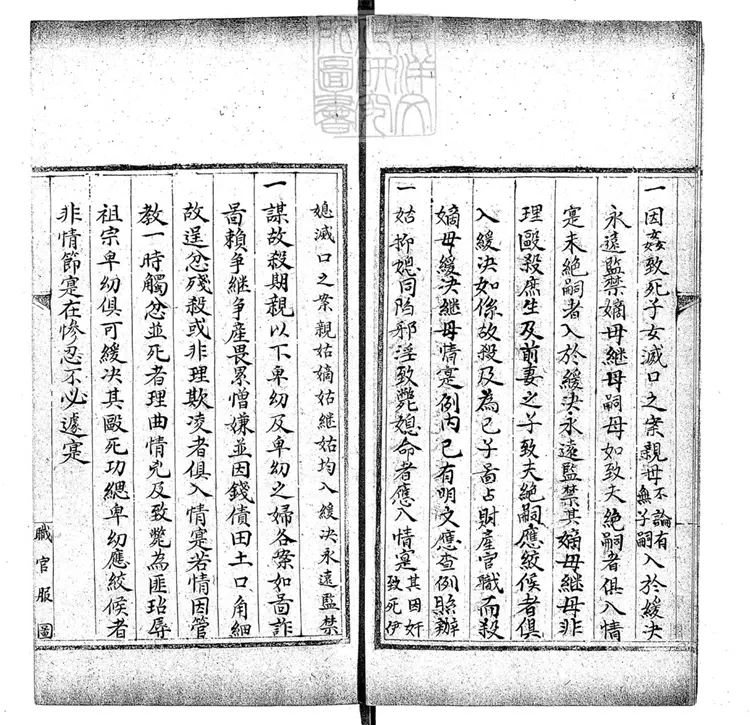 一因姦致死子女滅口之案親母不論有無子嗣入於緩決
永遠監禁嫡母繼母嗣母如致夫絕嗣者俱入情
寔未絕嗣者入於緩決永遠監禁其嫡母繼母非
理毆殺庶生及前妻之子致夫絕嗣應絞候者俱
入緩決如係故殺及為己子啚占財産官職而殺
嫡母緩決繼母情寔例內已有明文應查例照辦
一姑抑媳同陷邪淫致斃媳命者應入情寔其因奸致死伊
媳滅口之案親姑嫡姑繼姑均入緩決永遠監禁
一謀故殺期親以下卑幼及卑幼之婦各案如啚詐
啚賴爭繼爭產畏累憎嫌並因錢債田土口角細
故逞忿殘殺或非理欺凌者俱入情寔若情因管
教一時觸忿並死者理曲情兇及致斃為匪玷辱
祖宗卑幼俱可緩决其毆死功緦卑幼應絞候者
非情節寔在慘忍不必遽寔
職官服圖
東洋文化研究所圖書